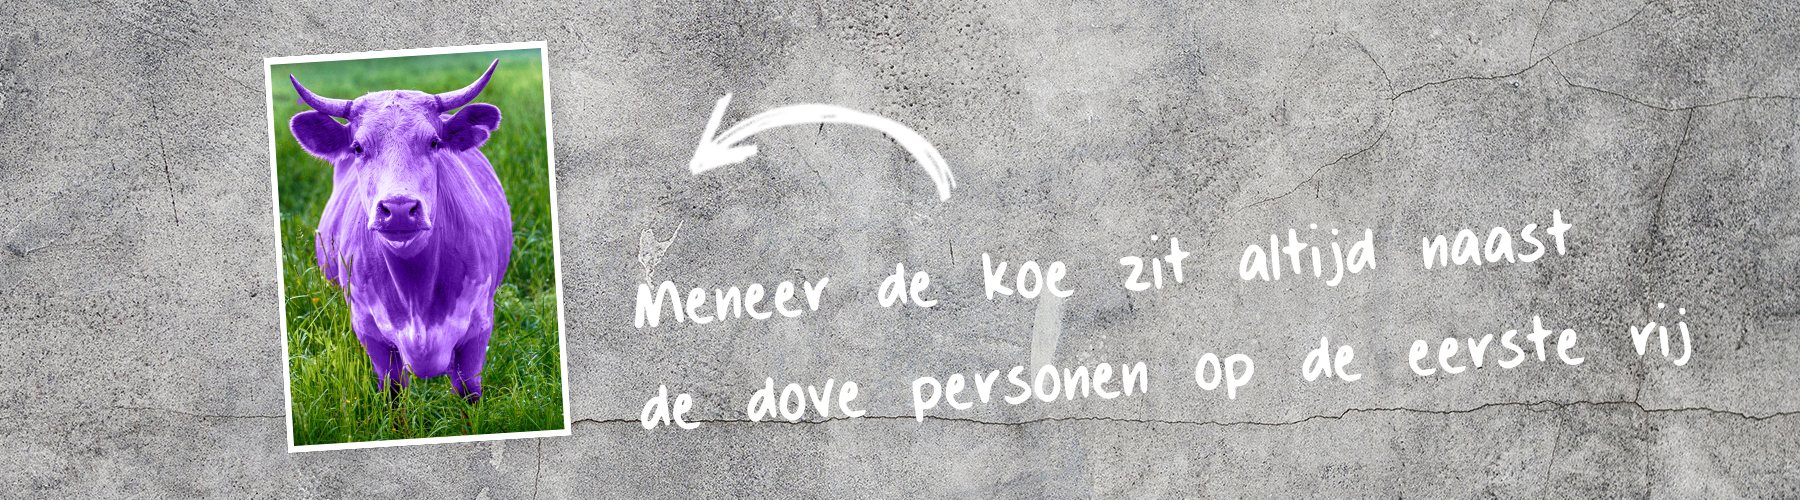 Meneer de koe zit altijd naast
de dove personen op de eerste rij